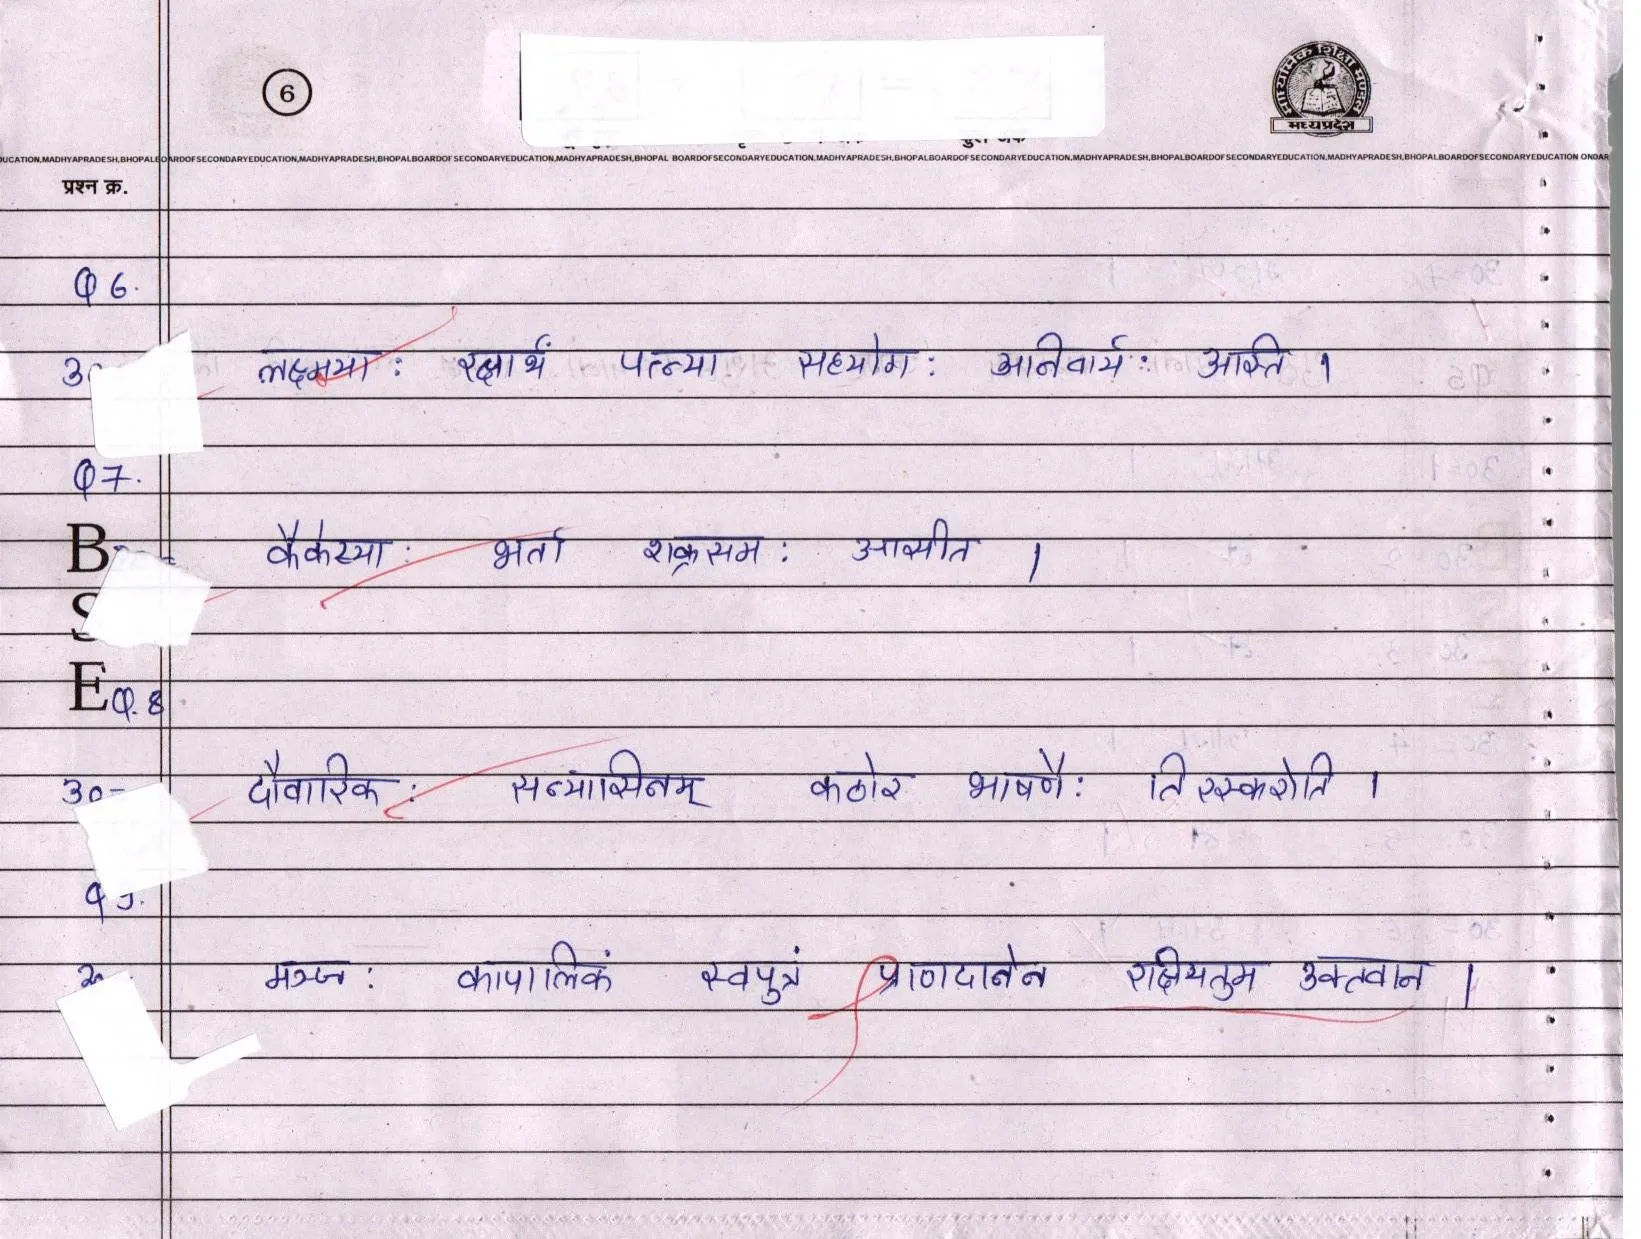 6
माध्यमिक शिक्षा मण्डल
मध्यप्रदेश
UCATION,MADHYAPRADESH,BHOPALBOARDOFSECONDARYEDUCATION,MADHYAPRADESH,BHOPALBOARDOFSECONDARYEDUCATION,MADHYAPRADESH,BHOPAL BOARDOFSECONDARYEDUCATION,MADHYAPRADESH,BHOPALBOARDOFSECONDARYEDUCATION,MADHYAPRADESH,BHOPALBOARDOFSECONDARYEDUCATION,MADHYAPRADESH,BHOPALBOARDOFSECONDARYEDUCATION ONDAR
प्रश्न क्र.
Q 6.
लक्ष्मया: रक्षार्थं पत्न्या सहयोग: अनिवार्य: अस्ति ।
Q 7.
B कैकेय्या: भर्ता शक्रसम: आसीत ।
S
E Q. 8
उ०- दौवारिक: सन्यासिनम् कठोर भाषणै: तिरस्करोति ।
मञ्ज: कापालिकं स्वपुत्रं प्राणदानेन रक्षियतुम उक्तवान ।